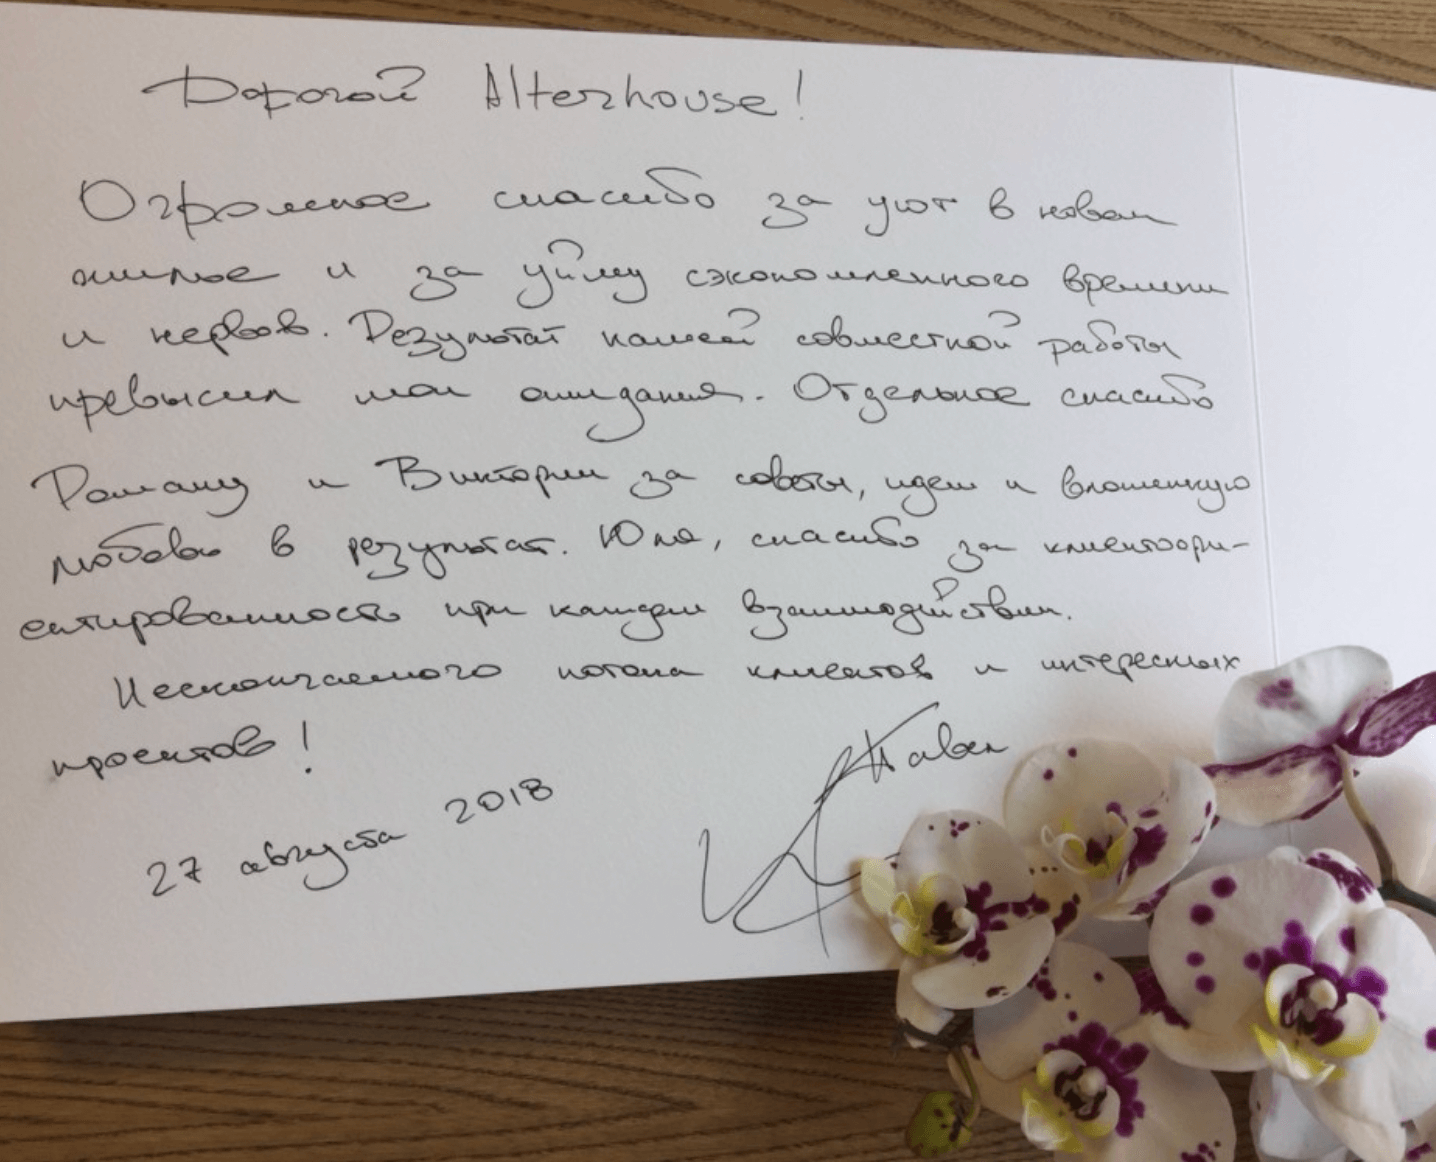 Дорогой Alterhouse!
Огромное спасибо за уют в новом
жилье и за уйму сэкономленного времени
и нервов. Результат нашей совместной работы
превысил мои ожидания. Отдельное спасибо
Роману и Виктории за советы, идеи и вложенную
любовь в результат. Юля, спасибо за клиентоори-
ентированность при каждом взаимодействии.
Нескончаемого потока клиентов и интересных
проектов!
27 августа 2018